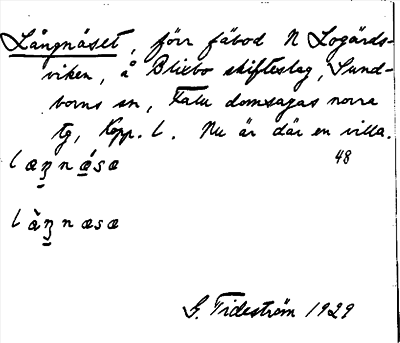 Långnäset, förr fäbod N Logärds-
viken, å Blixbo skifteslag, Sund-
borns sn, Falu domsagas norra
tg, Kopp. l. Nu är där en villa.
48
G. Tideström 1929